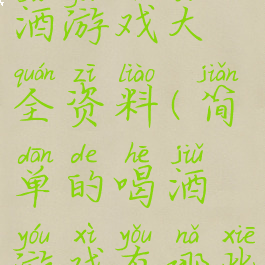 酒游戏大
quán zī liào jiǎn
全资料(简
dān de hē jiǔ
单的喝酒
yóu xì yǒu nǎ xiē
游戏有哪些